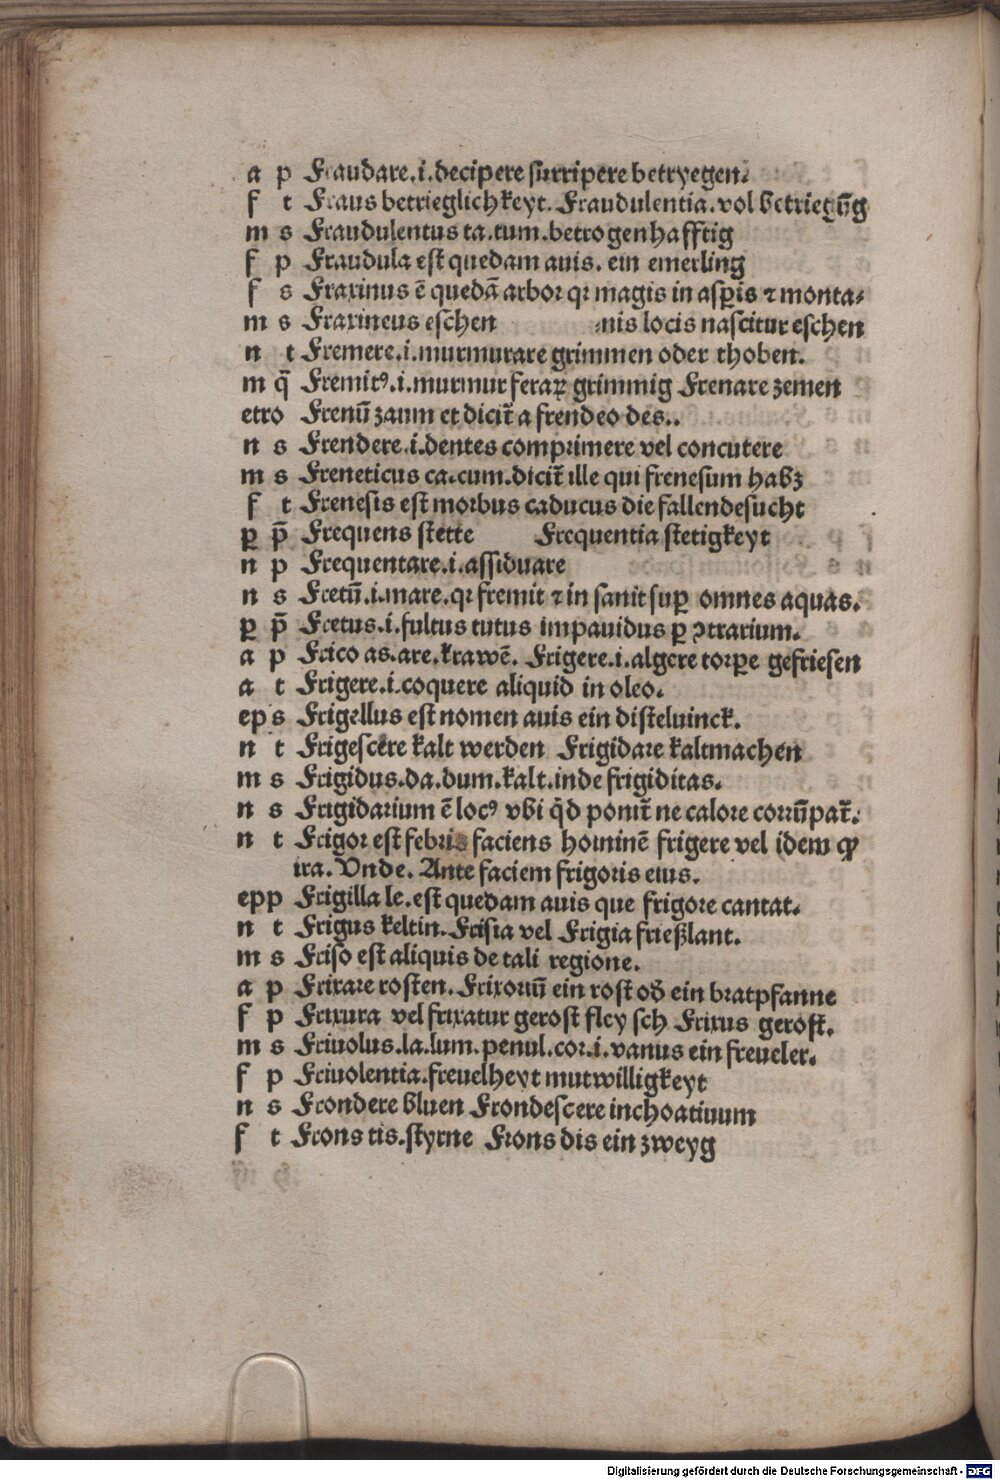 a p Fraudare.i.decipere surripere betryegen.
f t Fraus betrieglichkeyt. Fraudulentia.vol betriegūg
m s Fraudulentus ta.tum.betrogenhafftig
f p Fraudula est quedam auis. ein emerling
f s Fraxinus ē quedā arbor qꝛ magis in asp̲is ⁊ monta⸗
m s Fraxineus eschen ⸗nis locis nascitur eschen
n t Fremere.i.murmurare grimmen oder thoben.
m q̄ Fremitꝰ.i.murmur feraꝝ grimmig Frenare zemen
etro Frenū zaum et dicit̄ a frendeo des..
n s Frendere.i.dentes comprimere vel concutere
m s Freneticus ca.cum.dicit̄ ille qui frenesum habꝫ
f t Frenesis est morbus caducus die fallendesucht
ꝑ p̄ Frequens stette Frequentia stetigkeyt
n p Frequentare.i.assiduare
n s Fretū.i.mare.qꝛ fremit ⁊ in sanit suꝑ omnes aquas.
ꝑ p̄ Fretus.i.fultus tutus impauidus ꝑ ꝯtrarium.
a p Frico as.are.krawē. Frigere.i.algere torꝑe gefriesen
a t Frigere.i.coquere aliquid in oleo.
ep s Frigellus est nomen auis ein disteluinck.
n t Frigescere kalt werden Frigidare kaltmachen
m s Frigidus.da.dum.kalt.inde frigiditas.
n s Frigidarium ē locꝰ vbi q̇d ponit̄ ne calore corrūpat̄.
n t Frigor est febris faciens hominē frigere vel idem ꝙ
ira. Vnde. Ante faciem frigoris eius.
epp Frigilla le.est quedam auis que frigore cantat.
n t Frigus keltin.Frisia vel Frigia frießlant.
m s Friso est aliquis de tali regione.
a p Frixare rosten.Frixoriū ein rost od̄ ein bratpfanne
f p Frixura vel frixatur gerost fleysch Frixus gerost.
m s Friuolus.la.lum.penul.cor.i.vanus ein freueler.
f p Friuolentia.freuelheyt mutwilligkeyt
n s Frondere bluen Frondescere inchoatiuum
f t Frons tis.styrne Frons dis ein zweyg
Digitalisierung gefördert durch die Deutsche Forschungsgemeinschaft - DFG